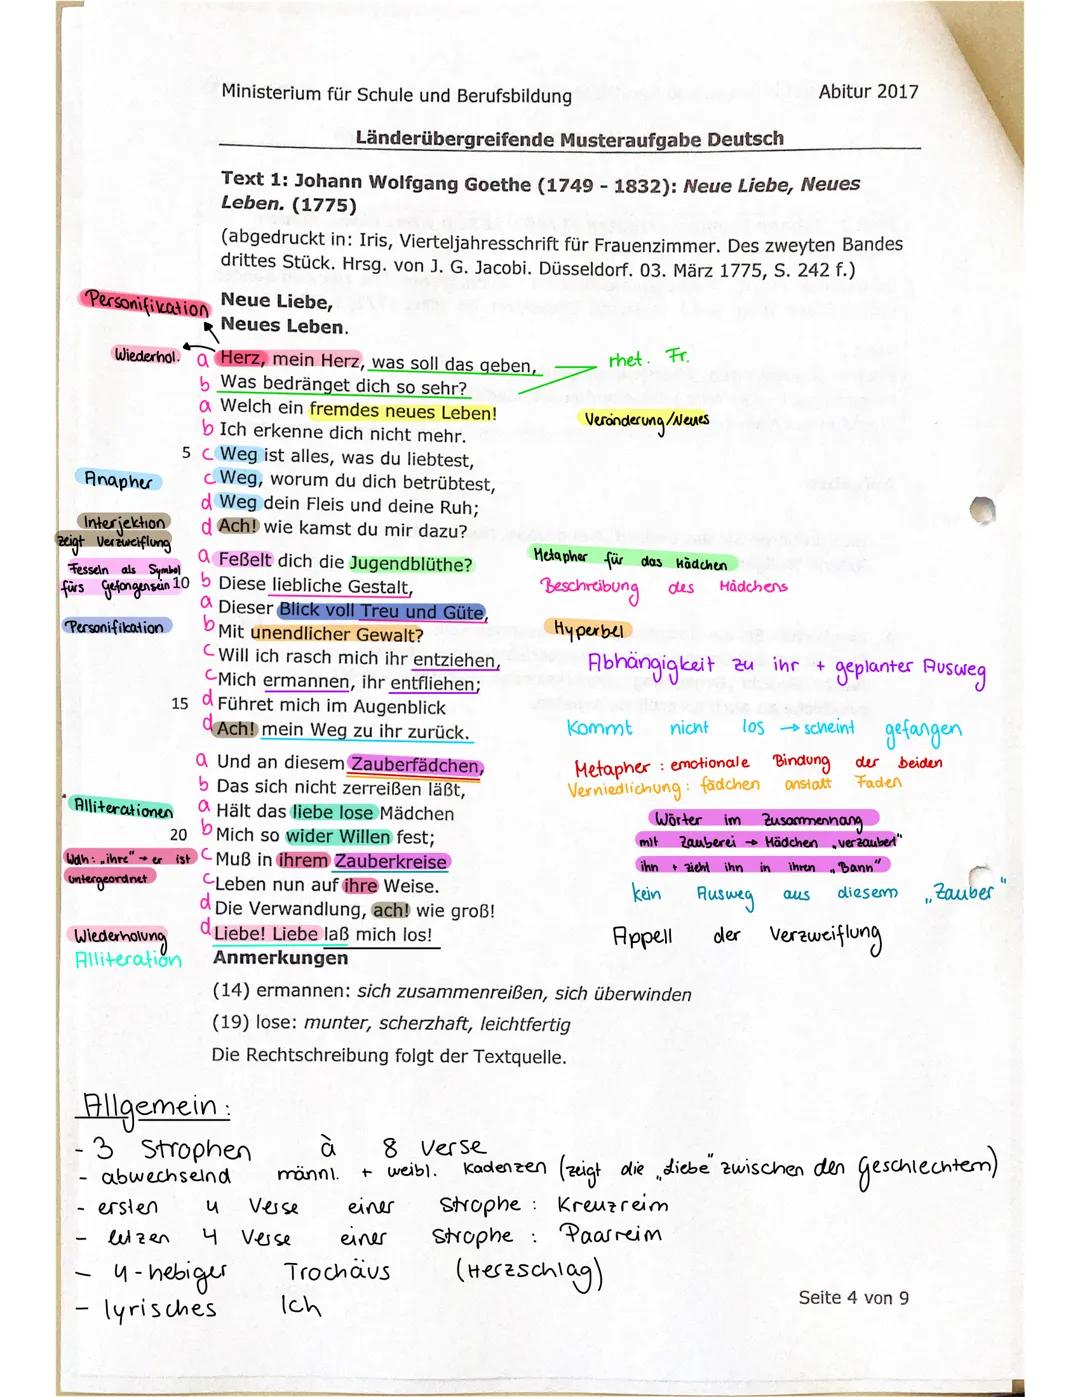 Ministerium für Schule und Berufsbildung Abitur 2017
Länderübergreifende Musteraufgabe Deutsch
Text 1: Johann Wolfgang Goethe (1749 - 1832): Neue Liebe, Neues
Leben. (1775)
(abgedruckt in: Iris, Vierteljahresschrift für Frauenzimmer. Des zweyten Bandes
drittes Stück. Hrsg. von J. G. Jacobi. Düsseldorf. 03. März 1775, S. 242 f.)
Personifikation Neue Liebe,
Neues Leben.
Wiederhol. a Herz, mein Herz, was soll das geben, rhet. Fr.
b Was bedränget dich so sehr?
a Welch ein fremdes neues Leben! Veränderung/Neues
b Ich erkenne dich nicht mehr.
5 c Weg ist alles, was du liebtest,
Anapher c Weg, worum du dich betrübtest,
d Weg dein Fleis und deine Ruh;
Interjektion d Ach! wie kamst du mir dazu?
zeigt Verzweiflung
Fesseln als Symbol a Feßelt dich die Jugendblüthe? Metapher für das Mädchen
fürs Gefangensein 10 b Diese liebliche Gestalt, Beschreibung des Mädchens
a Dieser Blick voll Treu und Güte,
Personifikation b Mit unendlicher Gewalt? Hyperbel
c Will ich rasch mich ihr entziehen, Abhängigkeit zu ihr + geplanter Ausweg
c Mich ermannen, ihr entfliehen;
15 d Führet mich im Augenblick
d Ach! mein Weg zu ihr zurück. Kommt nicht los → scheint gefangen
a Und an diesem Zauberfädchen, Metapher : emotionale Bindung der beiden
b Das sich nicht zerreißen läßt, Verniedlichung : fädchen anstatt Faden
Alliterationen a Hält das liebe lose Mädchen Wörter im Zusammenhang
20 b Mich so wider Willen fest; mit Zauberei → Mädchen „verzaubert"
Wdh : „ihre" → er ist c Muß in ihrem Zauberkreise ihn + zieht ihn in ihren „Bann"
untergeordnet c Leben nun auf ihre Weise. kein Ausweg aus diesem „Zauber"
d Die Verwandlung, ach! wie groß!
Wiederholung d Liebe! Liebe laß mich los! Appell der Verzweiflung
Alliteration Anmerkungen
(14) ermannen: sich zusammenreißen, sich überwinden
(19) lose: munter, scherzhaft, leichtfertig
Die Rechtschreibung folgt der Textquelle.
Allgemein :
- 3 Strophen à 8 Verse
- abwechselnd männl. + weibl. Kadenzen (zeigt die „Liebe" zwischen den Geschlechtern)
- ersten 4 Verse einer Strophe : Kreuzreim
- letzen 4 Verse einer Strophe : Paarreim
- 4-hebiger Trochäus (Herzschlag)
- lyrisches Ich
Seite 4 von 9